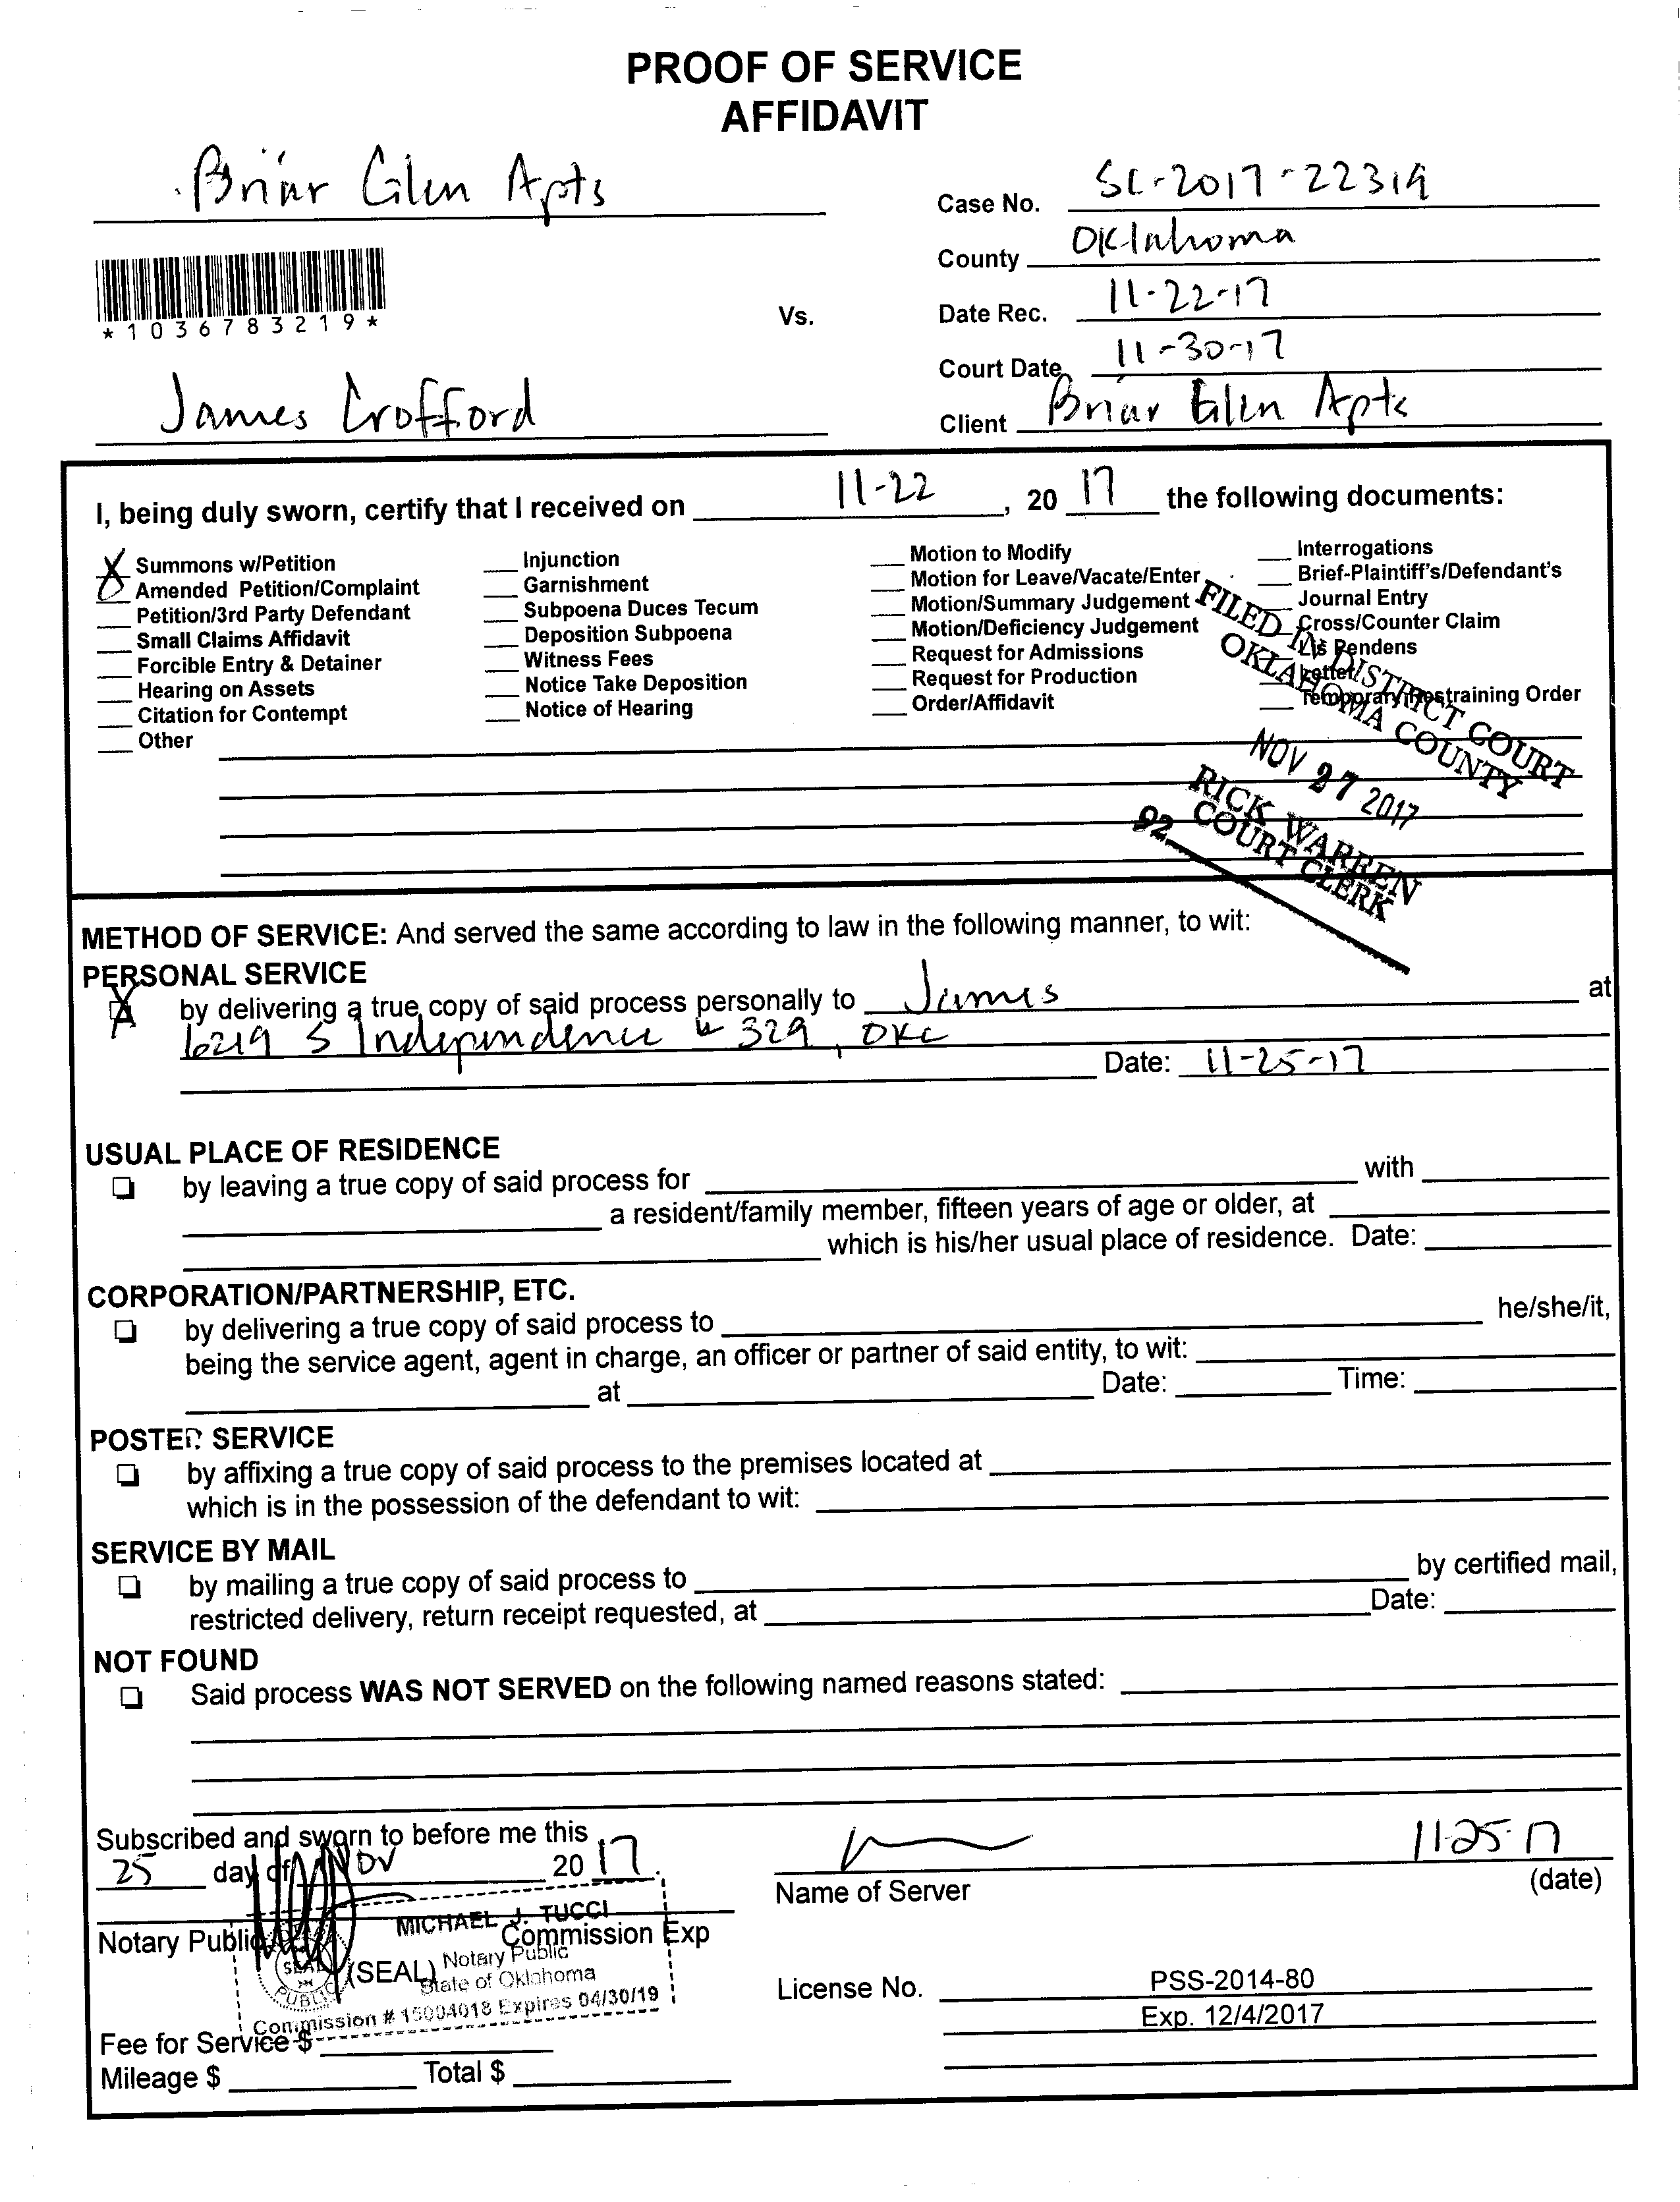 PROOF OF SERVICE
AFFIDAVIT
Briar Glen Apts
Case No. SC-2017-22319
County Oklahoma
*1036783219*
Vs.
Date Rec. 11-22-17
Court Date 11-30-17
James Crofford
Client Briar Glen Apts
I, being duly sworn, certify that I received on 11-22, 20 17 the following documents:
X Summons w/Petition
Amended Petition/Complaint
Petition/3rd Party Defendant
Small Claims Affidavit
Forcible Entry & Detainer
Hearing on Assets
Citation for Contempt
Other
Injunction
Garnishment
Subpoena Duces Tecum
Deposition Subpoena
Witness Fees
Notice Take Deposition
Notice of Hearing
Motion to Modify
Motion for Leave/Vacate/Enter
Motion/Summary Judgement
Motion/Deficiency Judgement
Request for Admissions
Request for Production
Order/Affidavit
Interrogations
Brief-Plaintiff's/Defendant's
Journal Entry
Cross/Counter Claim
Lis Pendens
Letter
Temporary Restraining Order
FILED IN DISTRICT COURT
OKLAHOMA COUNTY
NOV 27 2017
RICK WARREN
COURT CLERK
92
METHOD OF SERVICE: And served the same according to law in the following manner, to wit:
PERSONAL SERVICE
X by delivering a true copy of said process personally to James at
6219 S Independence # 329, OKC
Date: 11-25-17
USUAL PLACE OF RESIDENCE
by leaving a true copy of said process for with
a resident/family member, fifteen years of age or older, at
which is his/her usual place of residence. Date:
CORPORATION/PARTNERSHIP, ETC.
by delivering a true copy of said process to he/she/it,
being the service agent, agent in charge, an officer or partner of said entity, to wit:
at Date: Time:
POSTED SERVICE
by affixing a true copy of said process to the premises located at
which is in the possession of the defendant to wit:
SERVICE BY MAIL
by mailing a true copy of said process to by certified mail,
restricted delivery, return receipt requested, at Date:
NOT FOUND
Said process WAS NOT SERVED on the following named reasons stated:
Subscribed and sworn to before me this
25 day of Nov 20 17.
11-25-17
Name of Server (date)
Notary Public Commission Exp
(SEAL)
MICHAEL J. TUCCI
Notary Public
State of Oklahoma
Commission # 15004018 Expires 04/30/19
SEAL
PUBLIC
License No. PSS-2014-80
Exp. 12/4/2017
Fee for Service $
Mileage $ Total $